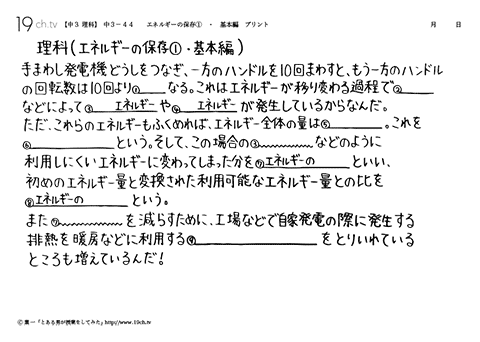 19ch.tv 【中3 理科】 中3-44 エネルギーの保存① ・ 基本編 プリント 月 日
理科(エネルギーの保存①・基本編)
手まわし発電機どうしをつなぎ、一方のハンドルを10回まわすと、もう一方のハンドル
の回転数は10回より①____なる。これはエネルギーが移り変わる過程で②____
などによって③____エネルギーや④____エネルギーが発生しているからなんだ。
ただ、これらのエネルギーもふくめれば、エネルギー全体の量は⑤____。これを
⑥____という。そして、この場合の③〰〰〰などのように
利用しにくいエネルギーに変わってしまった分を⑦エネルギーの____といい、
初めのエネルギー量と変換された利用可能なエネルギー量との比を
⑧エネルギーの____という。
また⑦〰〰〰を減らすために、工場などで自家発電の際に発生する
排熱を暖房などに利用する⑨____をとりいれている
ところも増えているんだ!
© 葉一「とある男が授業をしてみた」http://www.19ch.tv